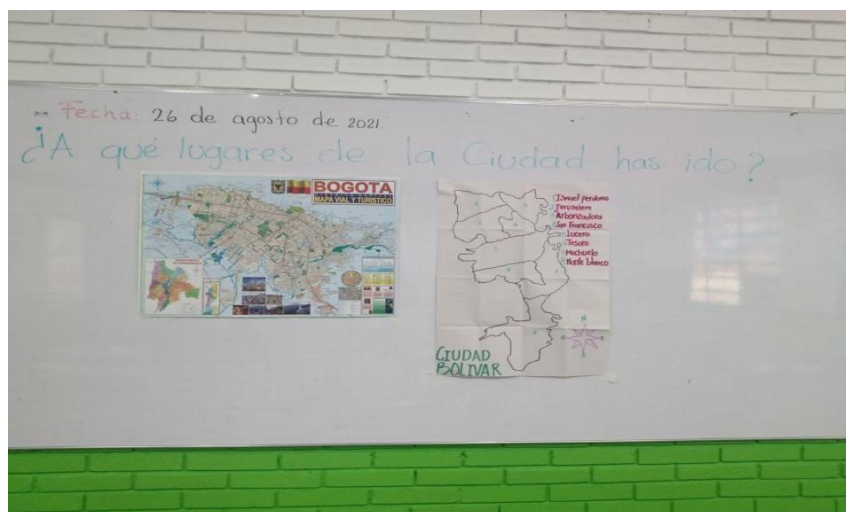 Fecha: 26 de agosto de 2021.
¿A qué lugares de la Ciudad has ido?
BOGOTA
MAPA VIAL Y TURISTICO
Ismael perdomo
Jerusalem
Arborizadora
San Francisco
Lucero
Tesoro
Mochuelo
Monte blanco
CIUDAD
BOLIVAR
N
S